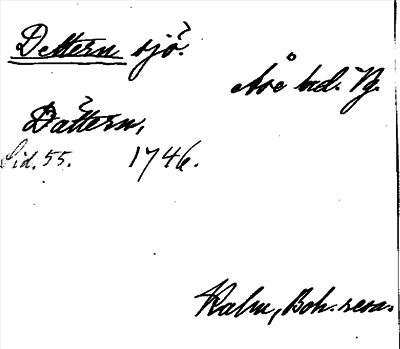 Dettern sjö.
Åse hd. Vg.
Dättern,
Sid. 55. 1746.
Kalm, Boh. resa.